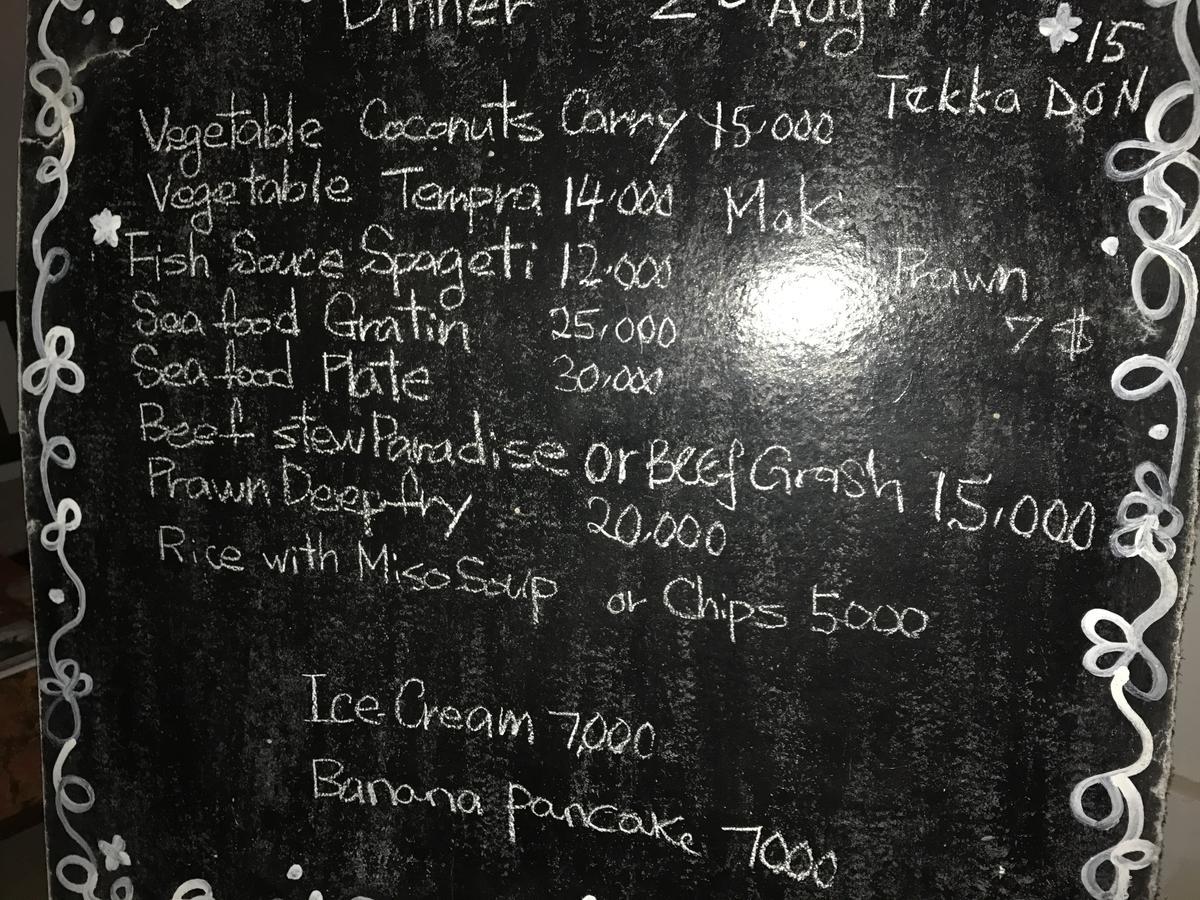 Dinner 2nd Aug 17
15
Tekka DON
Vegetable Coconuts Carry 15,000
Vegetable Tempra 14,000
Mak
Fish Sauce Spageti 12,000
Prawn
7 $
Sea food Gratin 25,000
Sea food Plate 30,000
Beef stew Paradise or Beef Grash 15,000
Prawn Deep fry 20,000
Rice with Miso Soup or Chips 5000
Ice Cream 7,000
Banana pancake 7000